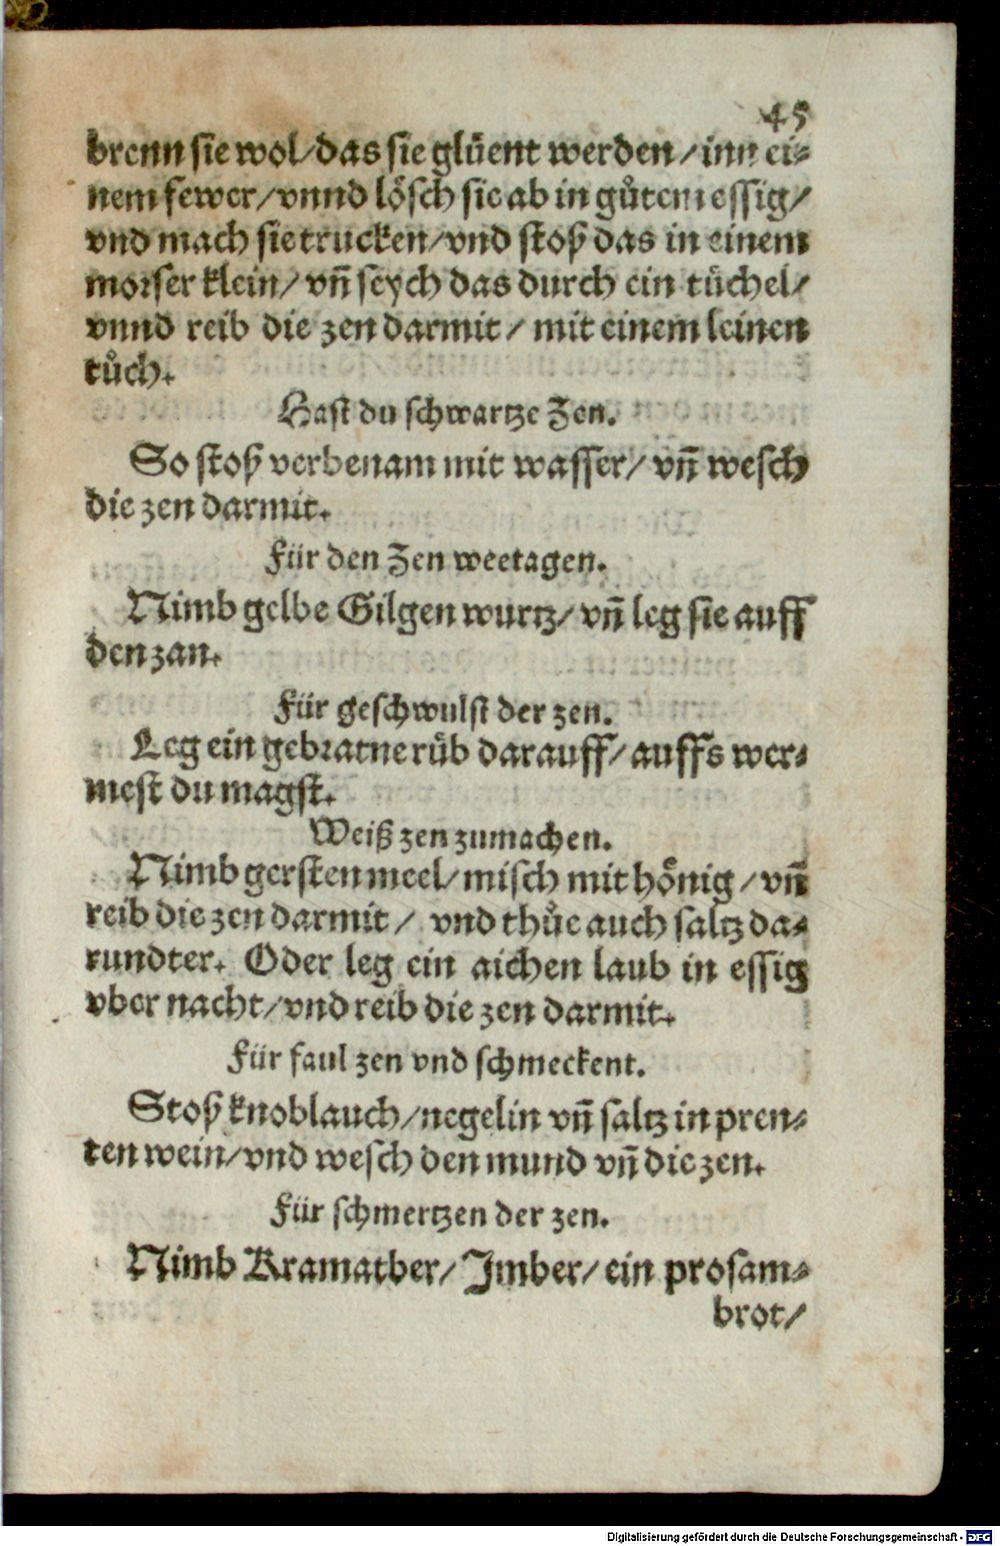 45
brenn sie wol/das sie glüent werden/inn ei⸗
nem fewer/vnnd lösch sie ab in gůtem essig/
vnd mach sie trucken/vnd stoß das in einem
morser klein/vn̄ seych das durch ein tüchel/
vnnd reib die zen darmit/mit einem leinen
tůch.
Hast du schwartze Zen.
So stoß verbenam mit wasser/vn̄ wesch
die zen darmit.
Für den Zen weetagen.
Nimb gelbe Gilgen wurtz/vn̄ leg sie auff
den zan.
Für geschwulst der zen.
Leg ein gebratne rüb darauff/auffs wer⸗
mest du magst.
Weiß zen zumachen.
Nimb gersten meel/misch mit hönig/vn̄
reib die zen darmit/vnd thůe auch saltz da⸗
rundter. Oder leg ein aichen laub in essig
vber nacht/vnd reib die zen darmit.
Für faul zen vnd schmeckent.
Stoß knoblauch/negelin vn̄ saltz in pren⸗
ten wein/vnd wesch den mund vn̄ die zen.
Für schmertzen der zen.
Nimb Kramatber/Jmber/ein prosam⸗
brot/
Digitalisierung gefördert durch die Deutsche Forschungsgemeinschaft - DFG